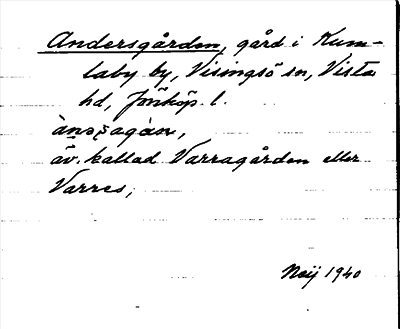 Andersgården, gård i Kum-
laby by, Visingsö sn, Vista
hd, Jönköp. l.
äv. kallad Varragården eller
Varres;
Neij 1940